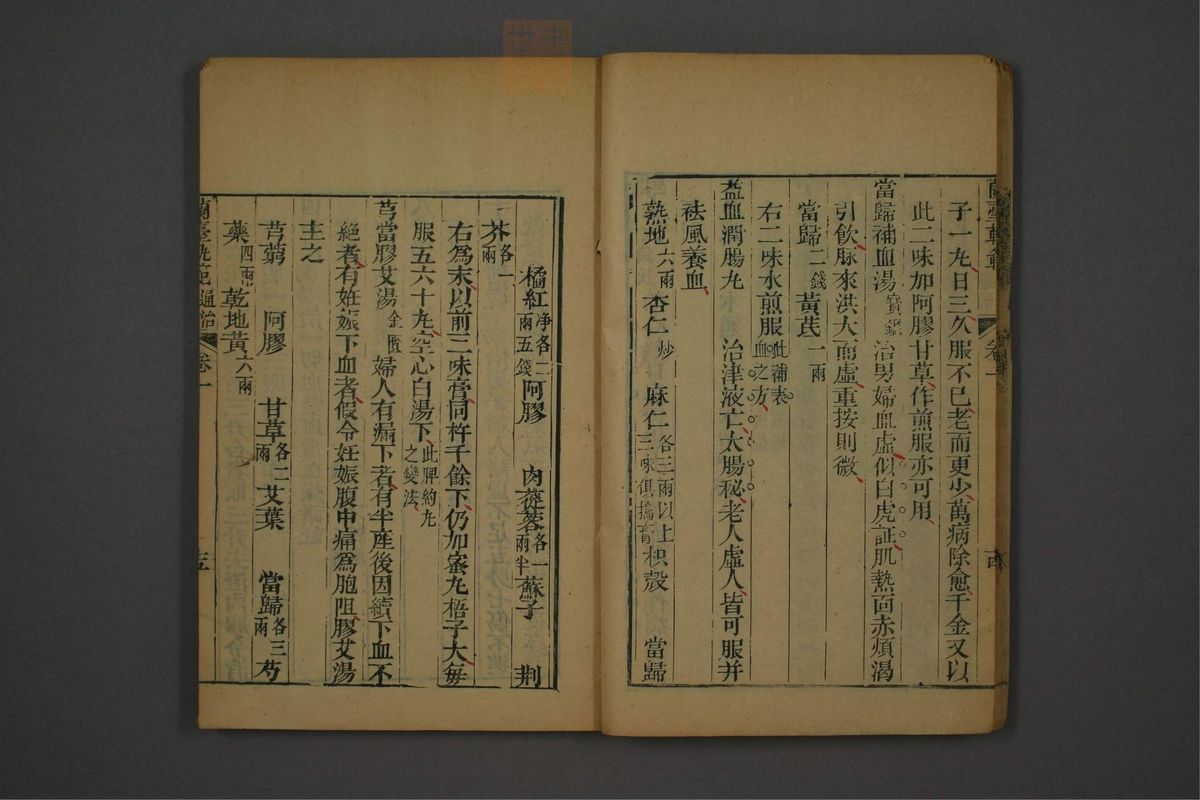 子一丸日三久服不已老而更少萬病除愈千金又以
此二味加阿膠甘草作煎服亦可用
當歸補血湯寶鑑治男婦血虛似白虎証肌熱面赤煩渴
引飲脉來洪大而虛重按則微
當歸二錢黃茋一兩
右二味水煎服此補表血之方
益血潤腸丸 治津液亡大腸秘老人虛人皆可服并
祛風養血
熟地六兩 杏仁炒 麻仁各三兩以上三味俱擣膏枳殼 當歸
橘紅净各二兩五錢阿膠 肉蓯蓉各一兩半蘇子 荆
芥各一兩
右爲末以前三味膏同杵千餘下仍加蜜丸梧子大每
服五六十丸空心白湯下此脾約丸之變法
芎當膠艾湯金匱 婦人有漏下者有半產後因續下血不
絕者有妊娠下血者假令妊娠腹中痛爲胞阻膠艾湯
主之
芎藭 阿膠 甘草各二兩艾葉 當歸各三兩芍
藥四兩 乾地黃六兩
卷一